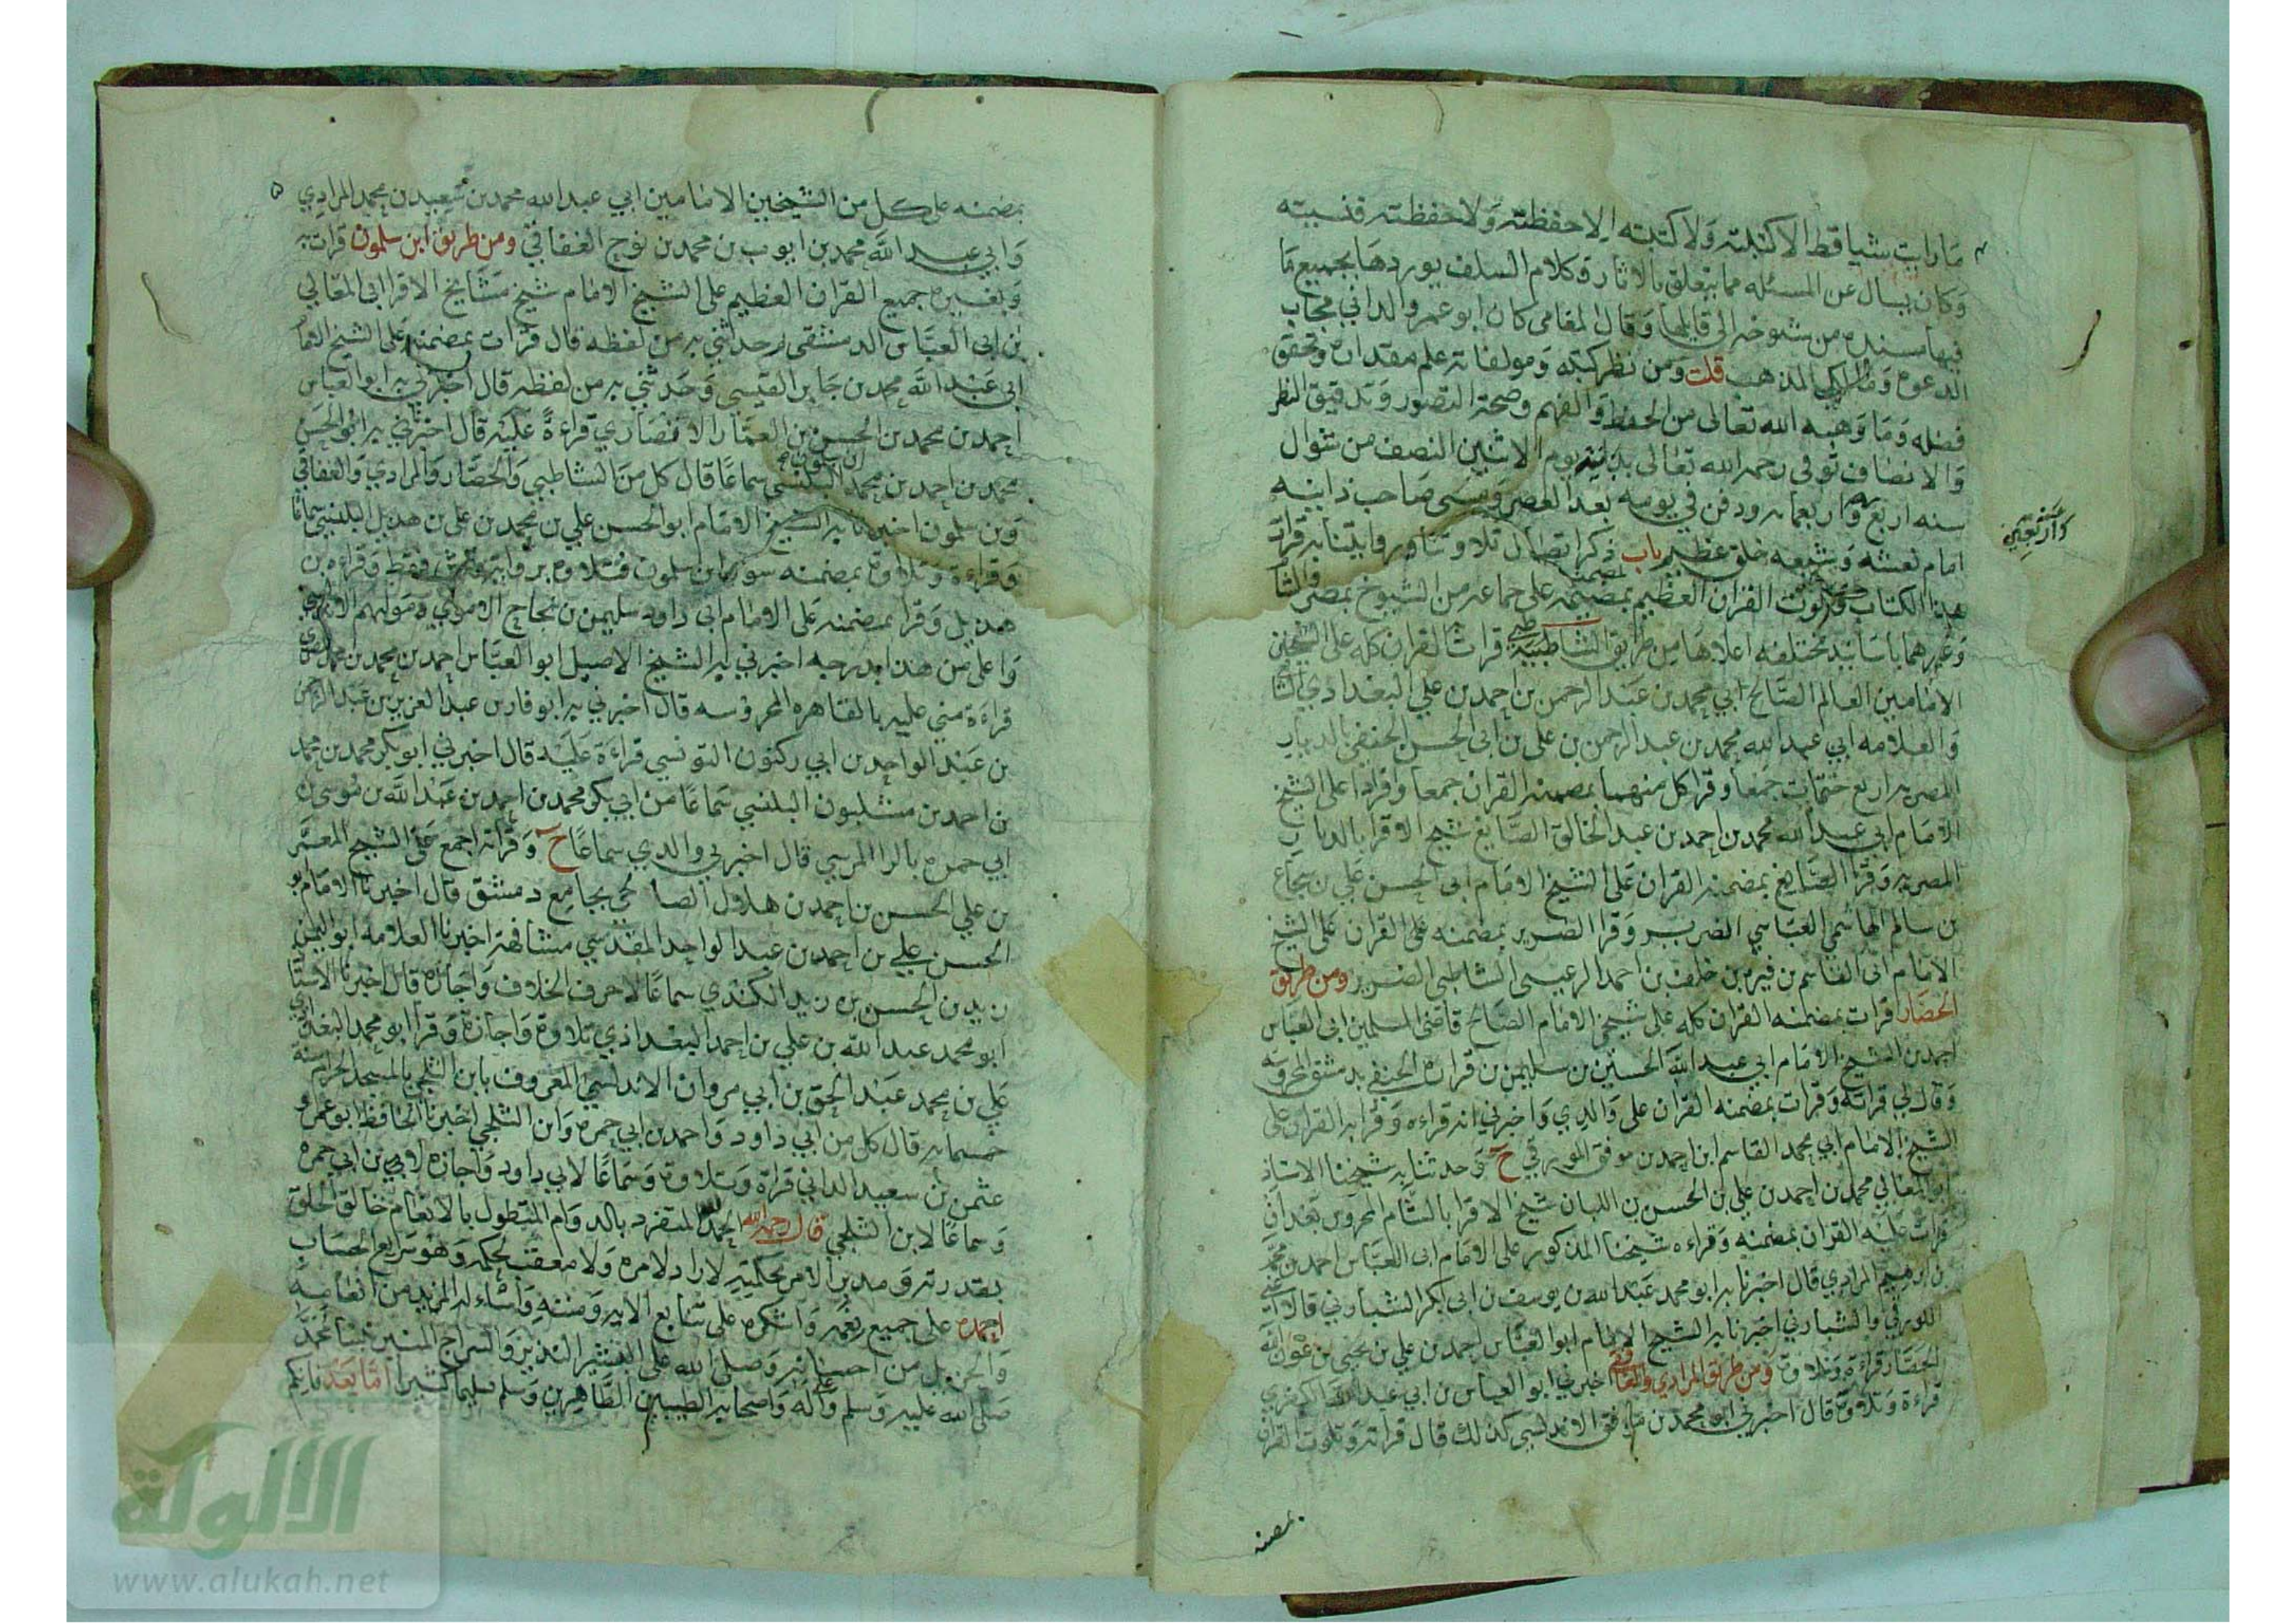 ما رايت شيا قط الا كتبته ولا كتبته الا حفظته ولا حفظته فنسيته
وكان يسال عن المسئله مما يتعلق بالاثار وكلام السلف يوردها بجميع ما
فيها مسنده من شيوخه الى قايلها وقال المغامي كان ابو عمرو الداني مجاب
الدعوه ومالكي المذهب قلت ومن نظر كتبه ومولفاته علم مقداره وتحقق
فضله وما وهبه الله تعالى من الحفظ والفهم وصحة التصور وتدقيق النظر
والانصاف توفى رحمه الله تعالى بدانيه يوم الاثنين النصف من شوال
سنه اربع واربعمايه ودفن في يومه بعد العصر ومشى صاحب دانيه
واربعين
امام نعشه وشيعه خلق عظيم باب ذكر اتصال تلاوتنا وروايتنا به قرات
هذا الكتاب وتلوت القران العظيم بمضمنه على جماعه من الشيوخ بمصر والشا
وغيرهما باسانيد مختلفه اعلاها من طريق الشاطبي قرات القران كله على الشيخين
الامامين العالم الصالح ابي محمد بن عبد الرحمن بن احمد بن علي البغدادي الشا
والعلامه ابي عبد الله محمد بن عبد الرحمن بن علي بن ابي الحسن الحنفي بالديار
المصريه اربع ختمات جمعا وقرا كل منهما بمضمنه القران جمعا وافرادا على الشيخ
الامام ابي عبد الله محمد بن احمد بن عبد الخالق الصايغ شيخ الاقرا بالديار
المصريه وقرا الصايغ بمضمنه القران على الشيخ الامام ابي الحسن علي بن شجاع
بن سالم الهاشمي العباسي الضرير وقرا الضرير بمضمنه على القران على الشيخ
الامام ابي القاسم بن فيره بن خلف بن احمد الرعيني الشاطبي الضرير ومن طريق
الحصار قرات بمضمنه القران كله على شيخي الامام الصالح قاضى المسلمين ابي العباس
احمد بن الشيخ الامام ابي عبد الله الحسين بن سليمن بن فزاره الحنفي بدمشق المحروسه
وقال لي قراته وقرات بمضمنه القران على والدي واخبرني انه قراءه وقرا به القران على
الشيخ الامام ابي محمد القاسم ابن احمد بن موفق اللورقي ح وحدثنا به شيخنا الاستاذ
ابو المعالي محمد بن احمد بن علي بن الحسن بن اللبان شيخ الاقرا بالشام المحروس بعد ان
قرات عليه القران بمضمنه وقراءه شيخنا المذكور على الامام ابي العباس احمد بن محمد
بن ابرهيم المرادي قال اخبرنا به ابو محمد عبد الله بن يوسف بن ابي بكر الشبارتي قالا
اللورقي والشبارتي اخبرنا به الشيخ الامام ابو العباس احمد بن علي بن يحيى بن عون الله
الحصار قراءة وتلاوة ومن طريق المرادي والغافقي اخبرني ابو العباس بن ابي عبد الله الكفري
قراءة وتلاوة قال اخبرني ابو محمد بن موفق الاندلسي كذلك قال قراته وتلوت القران
بمضمنه
بمضمنه على كل من الشيخين الامامين ابي عبد الله محمد بن سعيد بن محمد المرادي
وابي عبد الله محمد بن ايوب بن محمد بن نوح الغافقي ومن طريق ابن سلمون قرات به
وبغيره جميع القران العظيم على الشيخ الامام شيخ مشايخ الاقرا ابي المعالي
بن ابي العباس الدمشقي وحدثني به من لفظه قال قرات بمضمنه على الشيخ الامام
ابي عبد الله محمد بن جابر القيسي وحدثني به من لفظه قال اخبرني به ابو العباس
احمد بن محمد بن الحسن بن الغماز الانصاري قراءة عليه قال اخبرني به ابو الحسن
محمد بن احمد بن محمد بن سلمون البلنسي سماعا قال كل من الشاطبي والحصار والمرادي والغافقي
وبن سلمون اخبرنا به الشيخ الامام ابو الحسن علي بن محمد بن علي بن هذيل البلنسي سماعا
وقراءة وتلاوة بمضمنه سوى ابن سلمون فتلاوه بروايه ورش فقط وقراءه بن
هذيل وقرا بمضمنه على الامام ابي داود سليمن بن نجاح الاموي مولاهم الاندلسي
واعلى من هذا بدرجه اخبرني به الشيخ الاصيل ابو العباس احمد بن محمد بن محمد
قراءة مني عليه بالقاهره المحروسه قال اخبرني به ابو فارس عبد العزيز بن عبد الرحمن
بن عبد الواحد بن ابي ركنون التونسي قراءة عليه قال اخبرني ابو بكر محمد بن محمد
بن احمد بن مشليون البلنسي سماعا من ابي بكر محمد بن احمد بن عبد الله بن موسى بن
ابي حمره بالرا المرسي قال اخبرني والدي سماعا ح وقراته اجمع على الشيخ المعمر
بن علي الحسن بن احمد بن هلال الصالحي بجامع دمشق قال اخبرنا الامام ابو
الحسن علي بن احمد بن عبد الواحد المقدسي مشافهة اخبرنا العلامه ابو اليمن
زيد بن الحسن بن زيد الكندي سماعا لاحرف الخلاف واجازه قال اخبرنا الاستاذ
ابو محمد عبد الله بن علي بن احمد البغدادي تلاوة واجازة وقرا ابو محمد البغدادي
علي بن محمد عبد الحق بن ابي مروان الاندلسي المعروف بابن الثلجي بالمسجد الحرام سنه
خمسمايه قال كل من ابي داود واحمد بن ابي حمره وابن الثلجي اخبرنا الحافظ ابو عمرو
عثمن بن سعيد الداني قراة وتلاوة وسماعا لابي داود واجازه لابي بن ابي حمره
وسماعا لابن الثلجي قال رحمه الله الحمد لله المتفرد بالدوام المتطول بالانعام خالق الخلق
بقدرته ومدبر الامر بحكمته لا راد لامره ولا معقب لحكمه وهو سريع الحساب
احمده على جميع نعمه واشكره على تتابع الايه ومننه واساله المزيد من انعامه
والجزيل من احسانه وصلى الله على البشير النذير والسراج المنير نبينا محمد
صلى الله عليه وسلم وعلى اله واصحابه الطيبين الطاهرين وسلم تسليما كثيرا اما بعد فانكم
الألوكة
www.alukah.net